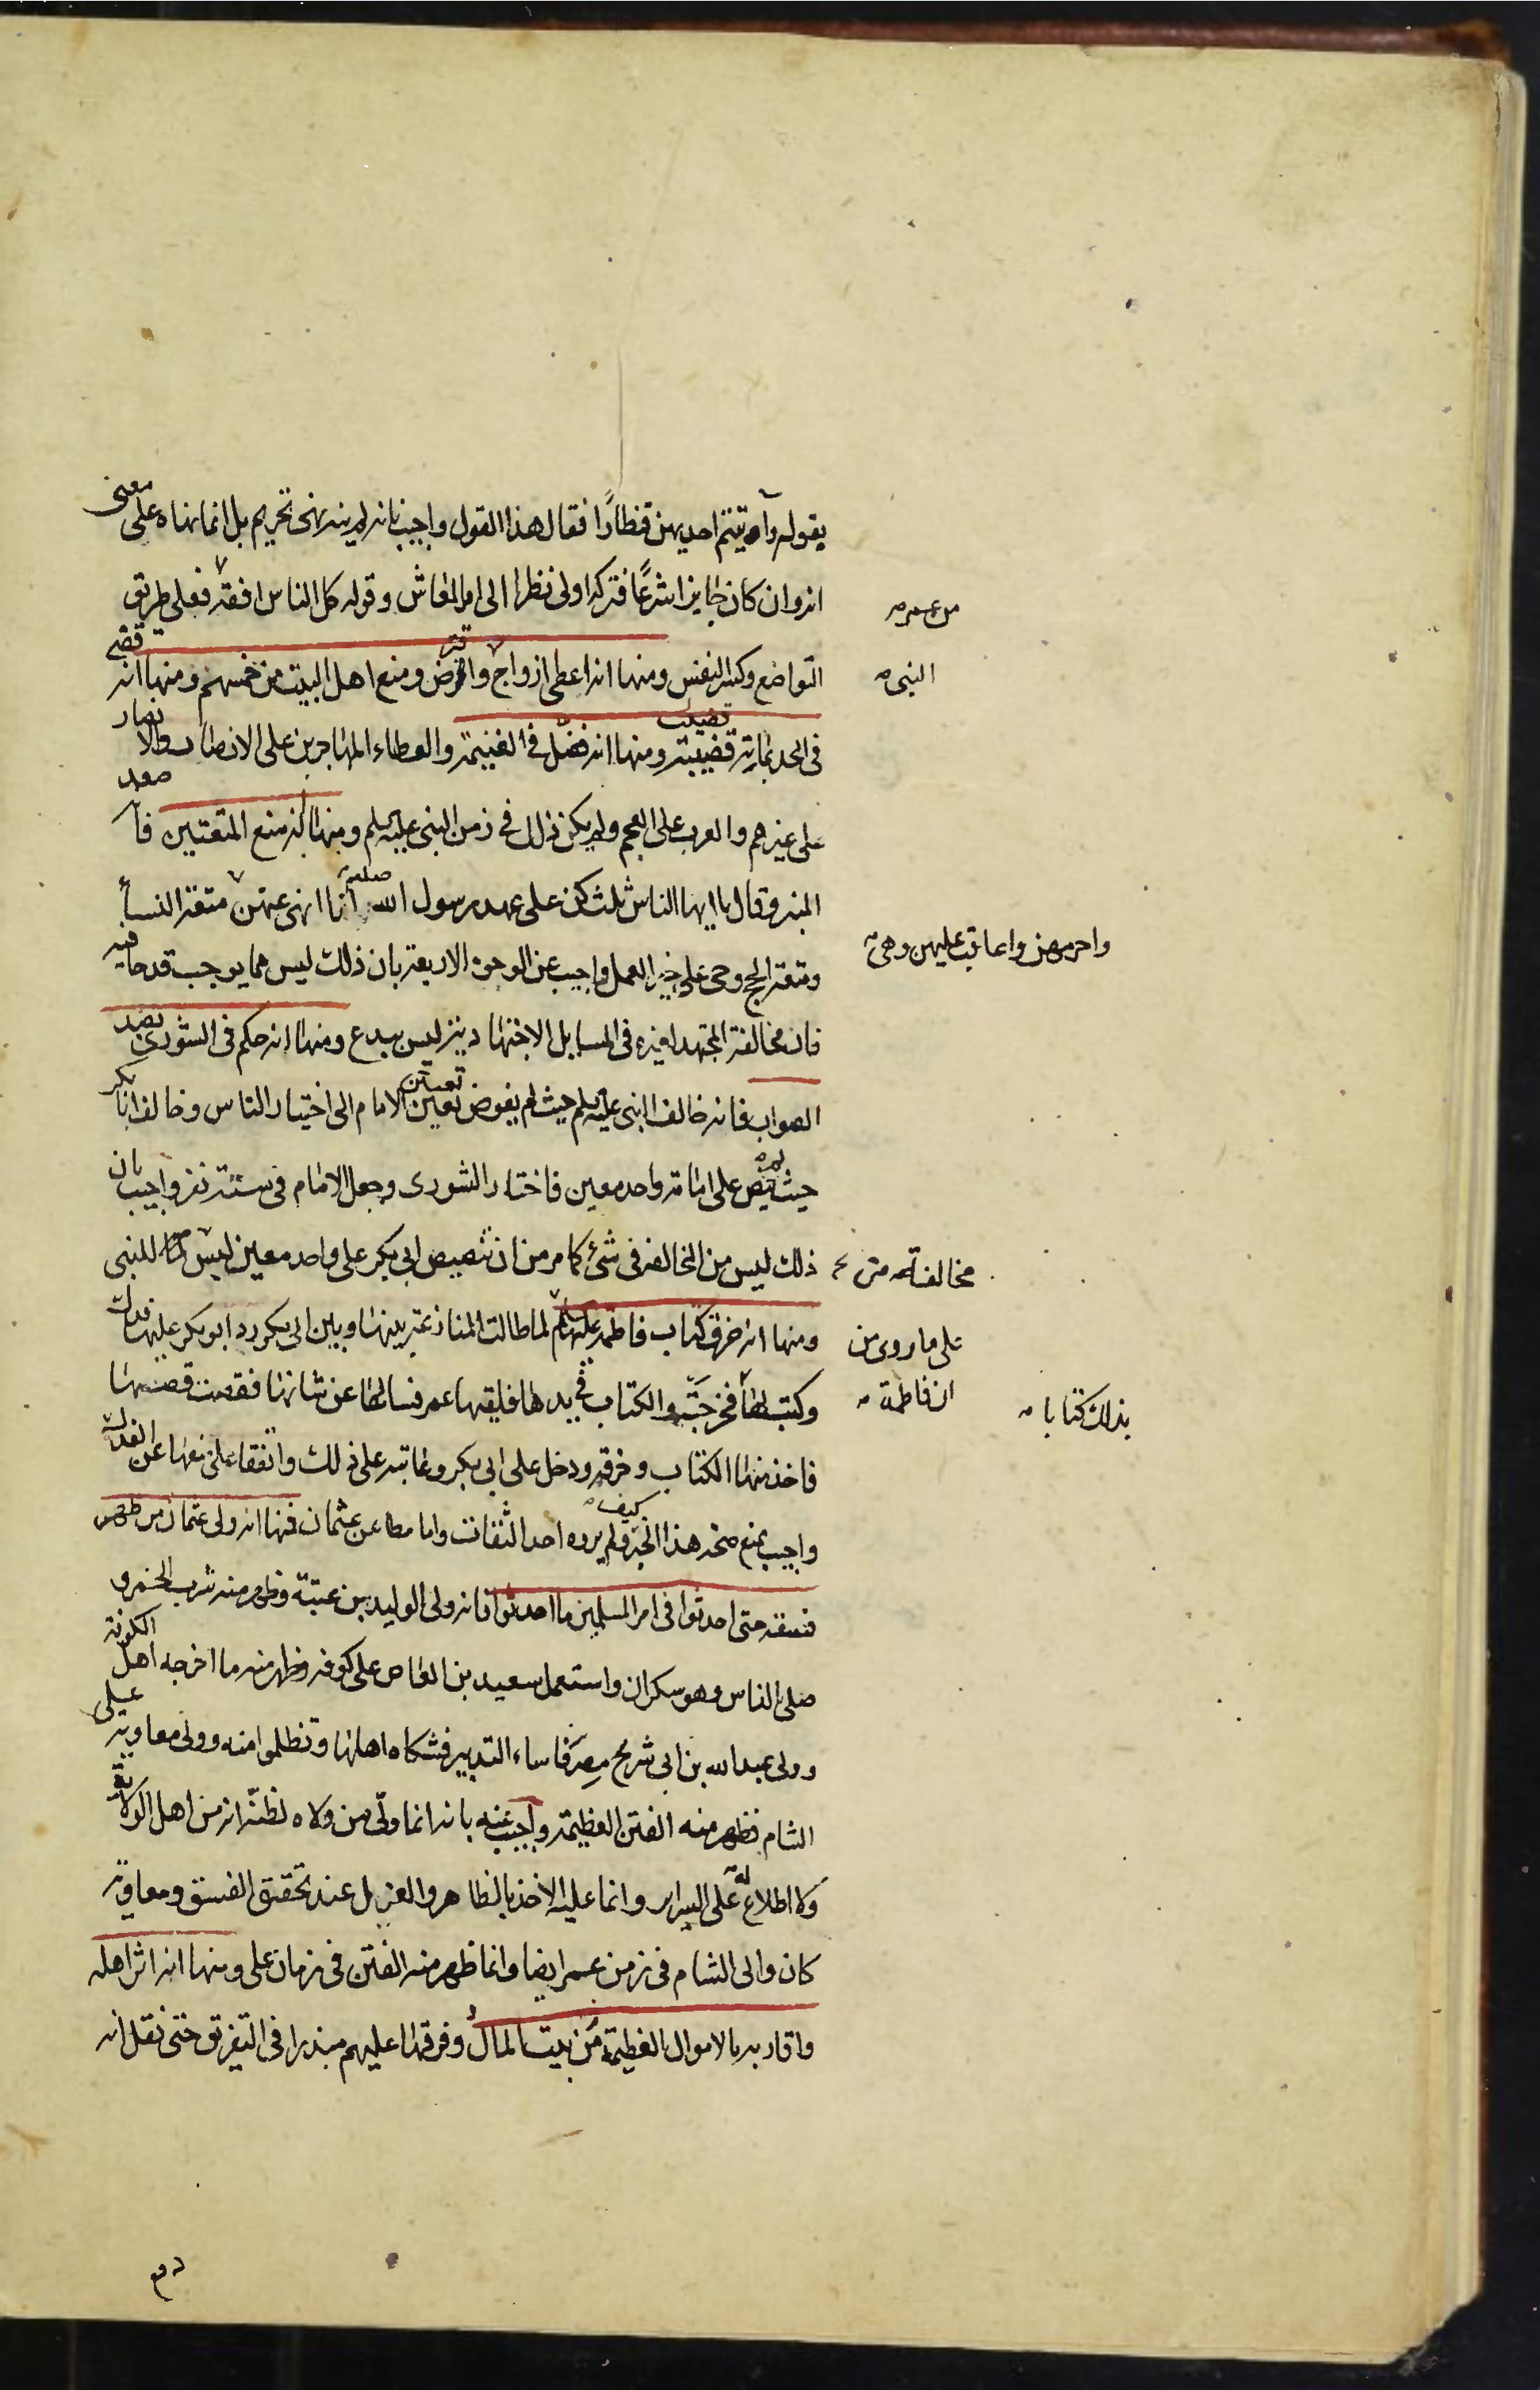 يقوله وآتيتم احديهن قنطارًا فقال هذا القول واجيب بانه لم ينه نهى تحريم بل انما نهاه على معنى
انه وان كان جايزا شرعًا فتركه اولى نظرا الى امر المعاش وقوله كل الناس افقه فعلى طريق
من عمر
التواضع وكسر النفس ومنها انه اعطى ازواج واقرض ومنع اهل البيت من خمسهم ومنها انه قضى
النبى
فى الحد بماية قضيبة ومنها انه فضّل فى الغنيمة والعطاء المهاجرين على الانصار والانصار
قضيب
على غيرهم والعرب على العجم ولم يكن ذلك فى زمن النبى عليه السلم ومنها انه منع المتعتين فانه صعد
المنبر وقال يا ايها الناس ثلث كن على عهد رسول الله صلعم انا انهى عنهن متعة النسأ
واحرمهن واعاقب عليهن وهى
ومتعة الحج وحى على خير العمل واجيب عن الوجوه الاربعة بان ذلك ليس مما يوجب قدحا فيه
فان مخالفة المجتهد لغيره فى المسايل الاجتهادية ليس ببدع ومنها انه حكم فى الشورى بضد
الصواب فانه خالف النبى عليه السلم حيث لم يفوض تعيين الامام الى اختيار الناس وخالف ابا بكر
حيث لم ينص على امامة واحد معين فاختار الشورى وجعل الامام فى ستة نفر واجيب بان
ذلك ليس من المخالفة فى شئ كما مر من ان تنصيص ابى بكر على واحد معين ليس للنبى
مخالفته
ومنها انه خرق كتاب فاطمة عليها السلم لما طالت المنازعة بينها وبين ابى بكر رد ابو بكر عليها فدك
على ما روى من
ان فاطمة
وكتب لها فخرجت والكتاب فى يدها فلقيها عمر فسالها عن شانها فقصت قصتها
بذلك كتابا
فاخذ منها الكتاب وخرقه ودخل على ابى بكر وعاتبه على ذلك واتفقا على منعها عن الفدك
واجيب بمنع صحة هذا الخبر كيف ولم يروه احد الثقات واما مطاعن عثمان فمنها انه ولى عثمان من ظهر
فسقه حتى احدثوا فى امر المسلمين ما احدثوا فانه ولى الوليد بن عتبة وظهر منه شرب الخمر و
صلى بالناس وهو سكران واستعمل سعيد بن العاص على كوفه وظهر منه ما اخرجه اهل الكوفة
وولى عبد الله بن ابى شرح مصر فاساء التدبير فشكاه اهلها وتظلموا منه وولى معاوية على
الشام فظهر منه الفتن العظيمة واجيب عنه بانه انما ولّى من ولاه لظنّه انه من اهل الولاية
ولا اطلاع له على السراير وانما عليه الاخذ بالظاهر والعزل عند تحقق الفسق ومعاوية
كان والى الشام فى زمن عمر ايضا وانما ظهر منه الفتن فى زمان على ومنها انه اثر اهله
واقاربه بالاموال العظيمة من بيت المال وفرقها عليهم مبذرا فى التفريق حتى نقل انه